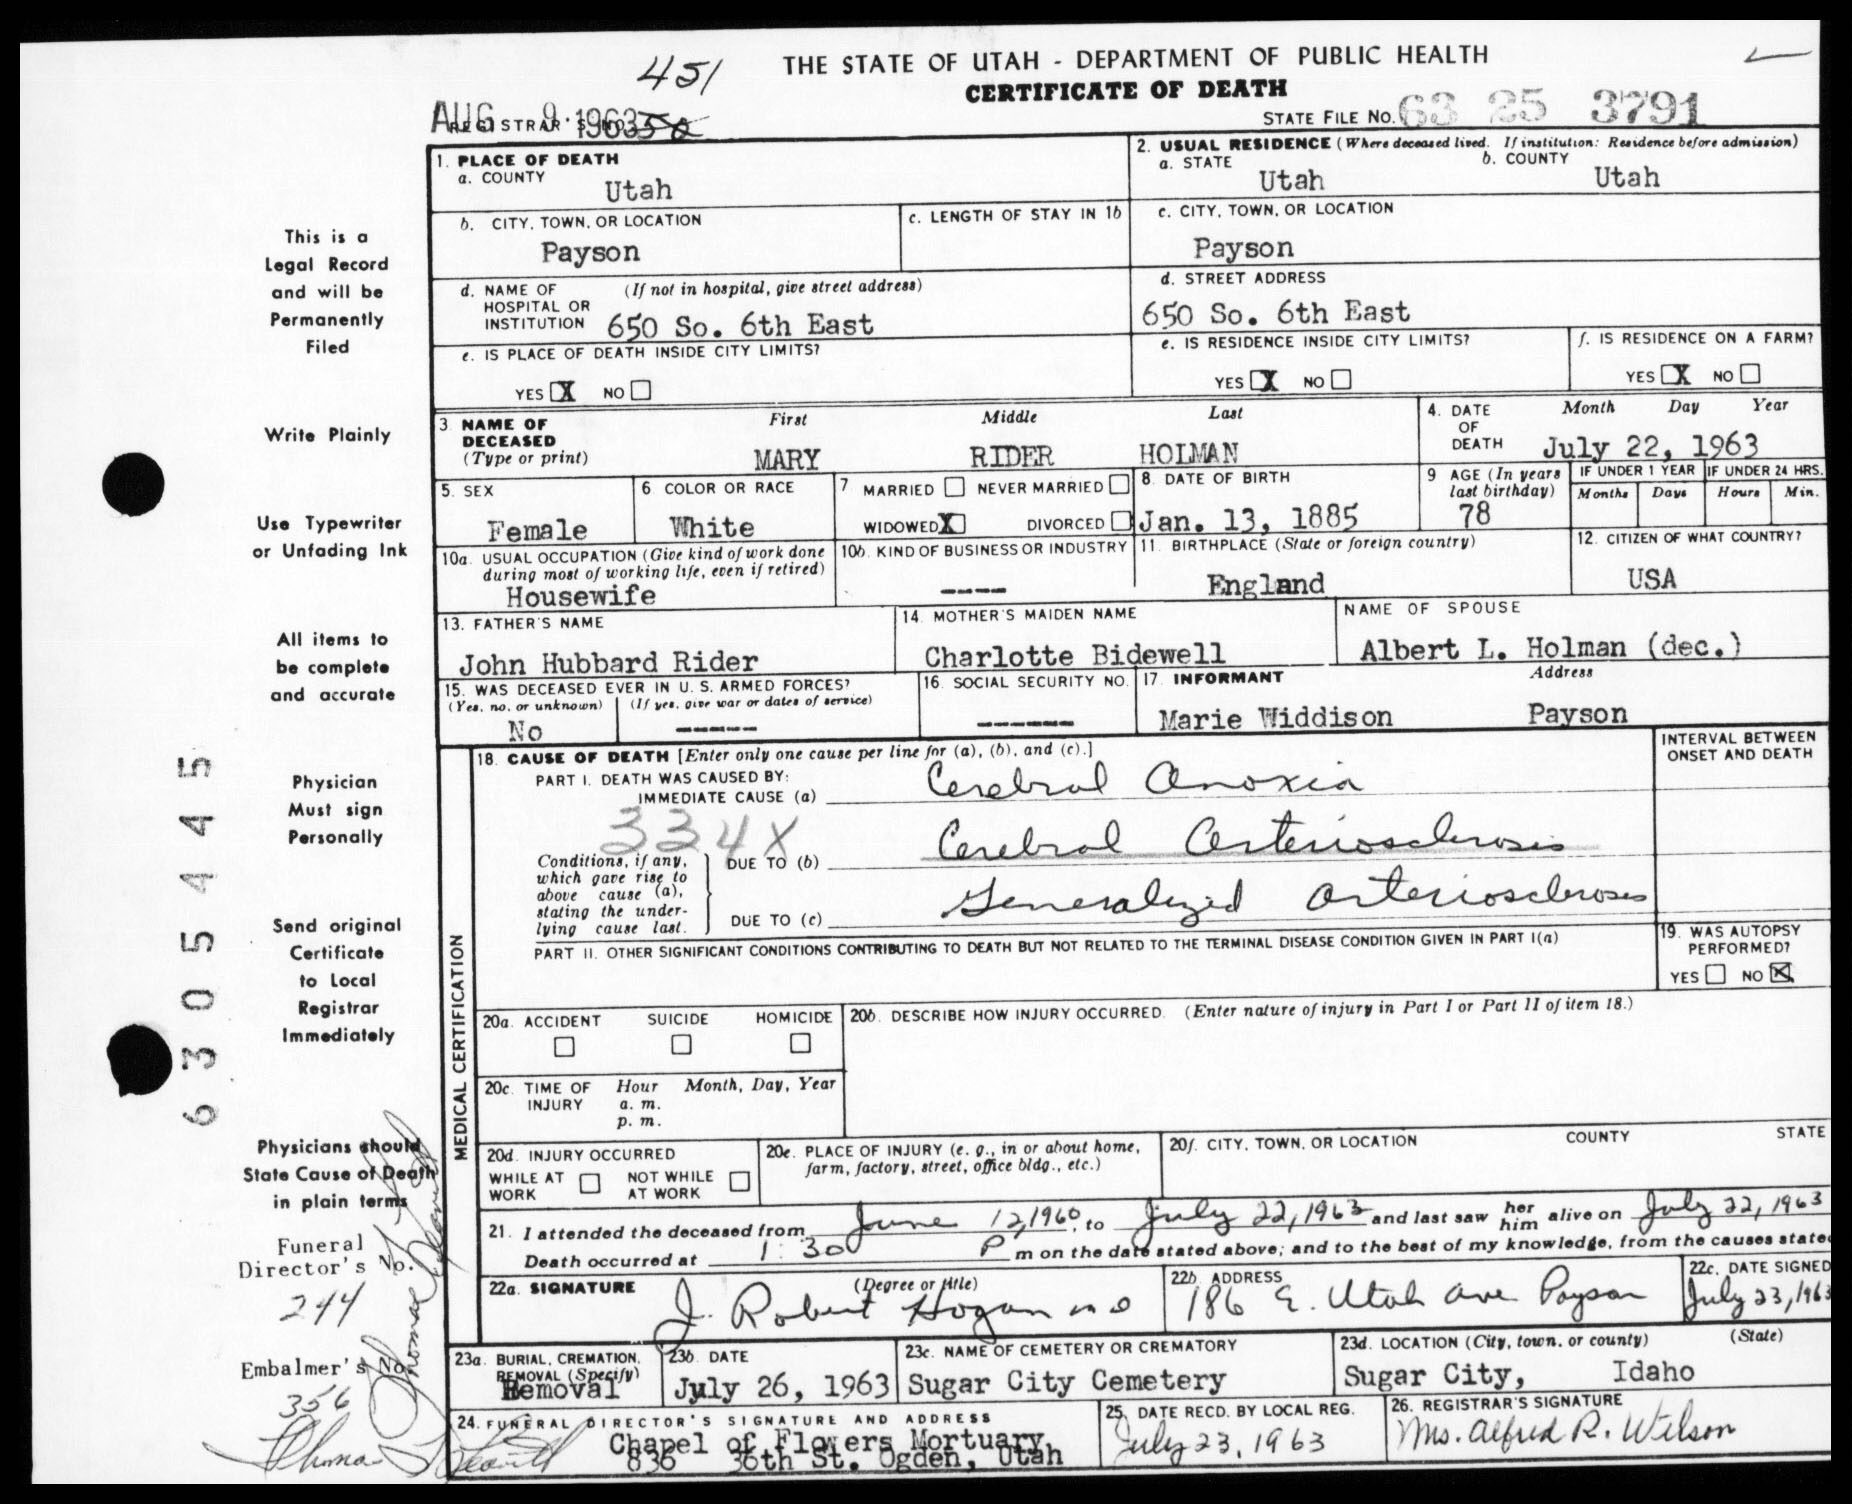 451
THE STATE OF UTAH - DEPARTMENT OF PUBLIC HEALTH
CERTIFICATE OF DEATH
AUG 9 1963
REGISTRAR'S NO. 50
STATE FILE No. 63 25 3791
1. PLACE OF DEATH
a. COUNTY
Utah
2. USUAL RESIDENCE (Where deceased lived. If institution: Residence before admission)
a. STATE
Utah
b. COUNTY
Utah
b. CITY, TOWN, OR LOCATION
Payson
c. LENGTH OF STAY IN 1b
c. CITY, TOWN, OR LOCATION
Payson
d. NAME OF HOSPITAL OR INSTITUTION
(If not in hospital, give street address)
650 So. 6th East
d. STREET ADDRESS
650 So. 6th East
e. IS PLACE OF DEATH INSIDE CITY LIMITS?
YES X NO
e. IS RESIDENCE INSIDE CITY LIMITS?
YES X NO
f. IS RESIDENCE ON A FARM?
YES X NO
3. NAME OF DECEASED
(Type or print)
First Middle Last
MARY RIDER HOLMAN
4. DATE OF DEATH
Month Day Year
July 22, 1963
5. SEX
Female
6 COLOR OR RACE
White
7 MARRIED NEVER MARRIED
WIDOWED X DIVORCED
8. DATE OF BIRTH
Jan. 13, 1885
9 AGE (In years last birthday)
78
IF UNDER 1 YEAR
Months Days
IF UNDER 24 HRS.
Hours Min.
10a. USUAL OCCUPATION (Give kind of work done
during most of working life, even if retired)
Housewife
10b. KIND OF BUSINESS OR INDUSTRY
----
11. BIRTHPLACE (State or foreign country)
England
12. CITIZEN OF WHAT COUNTRY?
USA
13. FATHER'S NAME
John Hubbard Rider
14. MOTHER'S MAIDEN NAME
Charlotte Bidewell
NAME OF SPOUSE
Albert L. Holman (dec.)
15. WAS DECEASED EVER IN U. S. ARMED FORCES?
(Yes, no, or unknown) (If yes, give war or dates of service)
No -----
16. SOCIAL SECURITY NO.
------
17. INFORMANT Address
Marie Widdison Payson
MEDICAL CERTIFICATION
18. CAUSE OF DEATH [Enter only one cause per line for (a), (b), and (c).]
INTERVAL BETWEEN ONSET AND DEATH
PART I. DEATH WAS CAUSED BY:
IMMEDIATE CAUSE (a) Cerebral Anoxia
334X
Conditions, if any,
which gave rise to
above cause (a),
stating the under-
lying cause last.
DUE TO (b) Cerebral Arteriosclerosis
DUE TO (c) Generalized arteriosclerosis
PART II. OTHER SIGNIFICANT CONDITIONS CONTRIBUTING TO DEATH BUT NOT RELATED TO THE TERMINAL DISEASE CONDITION GIVEN IN PART I(a)
19. WAS AUTOPSY PERFORMED?
YES NO X
20a. ACCIDENT SUICIDE HOMICIDE
20b. DESCRIBE HOW INJURY OCCURRED. (Enter nature of injury in Part I or Part II of item 18.)
20c. TIME OF INJURY
Hour Month, Day, Year
a. m.
p. m.
20d. INJURY OCCURRED
WHILE AT WORK NOT WHILE AT WORK
20e. PLACE OF INJURY (e. g., in or about home,
farm, factory, street, office bldg., etc.)
20f. CITY, TOWN, OR LOCATION COUNTY STATE
21. I attended the deceased from June 12, 1960, to July 22, 1963 and last saw her him alive on July 22, 1963
Death occurred at 1:30 P m on the date stated above; and to the best of my knowledge, from the causes stated
22a. SIGNATURE (Degree or title)
J. Robert Hogan MD
22b. ADDRESS
186 E. Utah Ave Payson
22c. DATE SIGNED
July 23, 1963
23a. BURIAL, CREMATION,
REMOVAL (Specify)
Removal
23b. DATE
July 26, 1963
23c. NAME OF CEMETERY OR CREMATORY
Sugar City Cemetery
23d. LOCATION (City, town, or county) (State)
Sugar City, Idaho
24. FUNERAL DIRECTOR'S SIGNATURE AND ADDRESS
Chapel of Flowers Mortuary
836 36th St. Ogden, Utah
25. DATE RECD. BY LOCAL REG.
July 23, 1963
26. REGISTRAR'S SIGNATURE
Mrs. Alfred R. Wilson
This is a
Legal Record
and will be
Permanently
Filed
Write Plainly
Use Typewriter
or Unfading Ink
All items to
be complete
and accurate
Physician
Must sign
Personally
Send original
Certificate
to Local
Registrar
Immediately
Physicians should
State Cause of Death
in plain terms
6305445
Funeral
Director's No.
244
Embalmer's No.
356
Thomas
Thomas